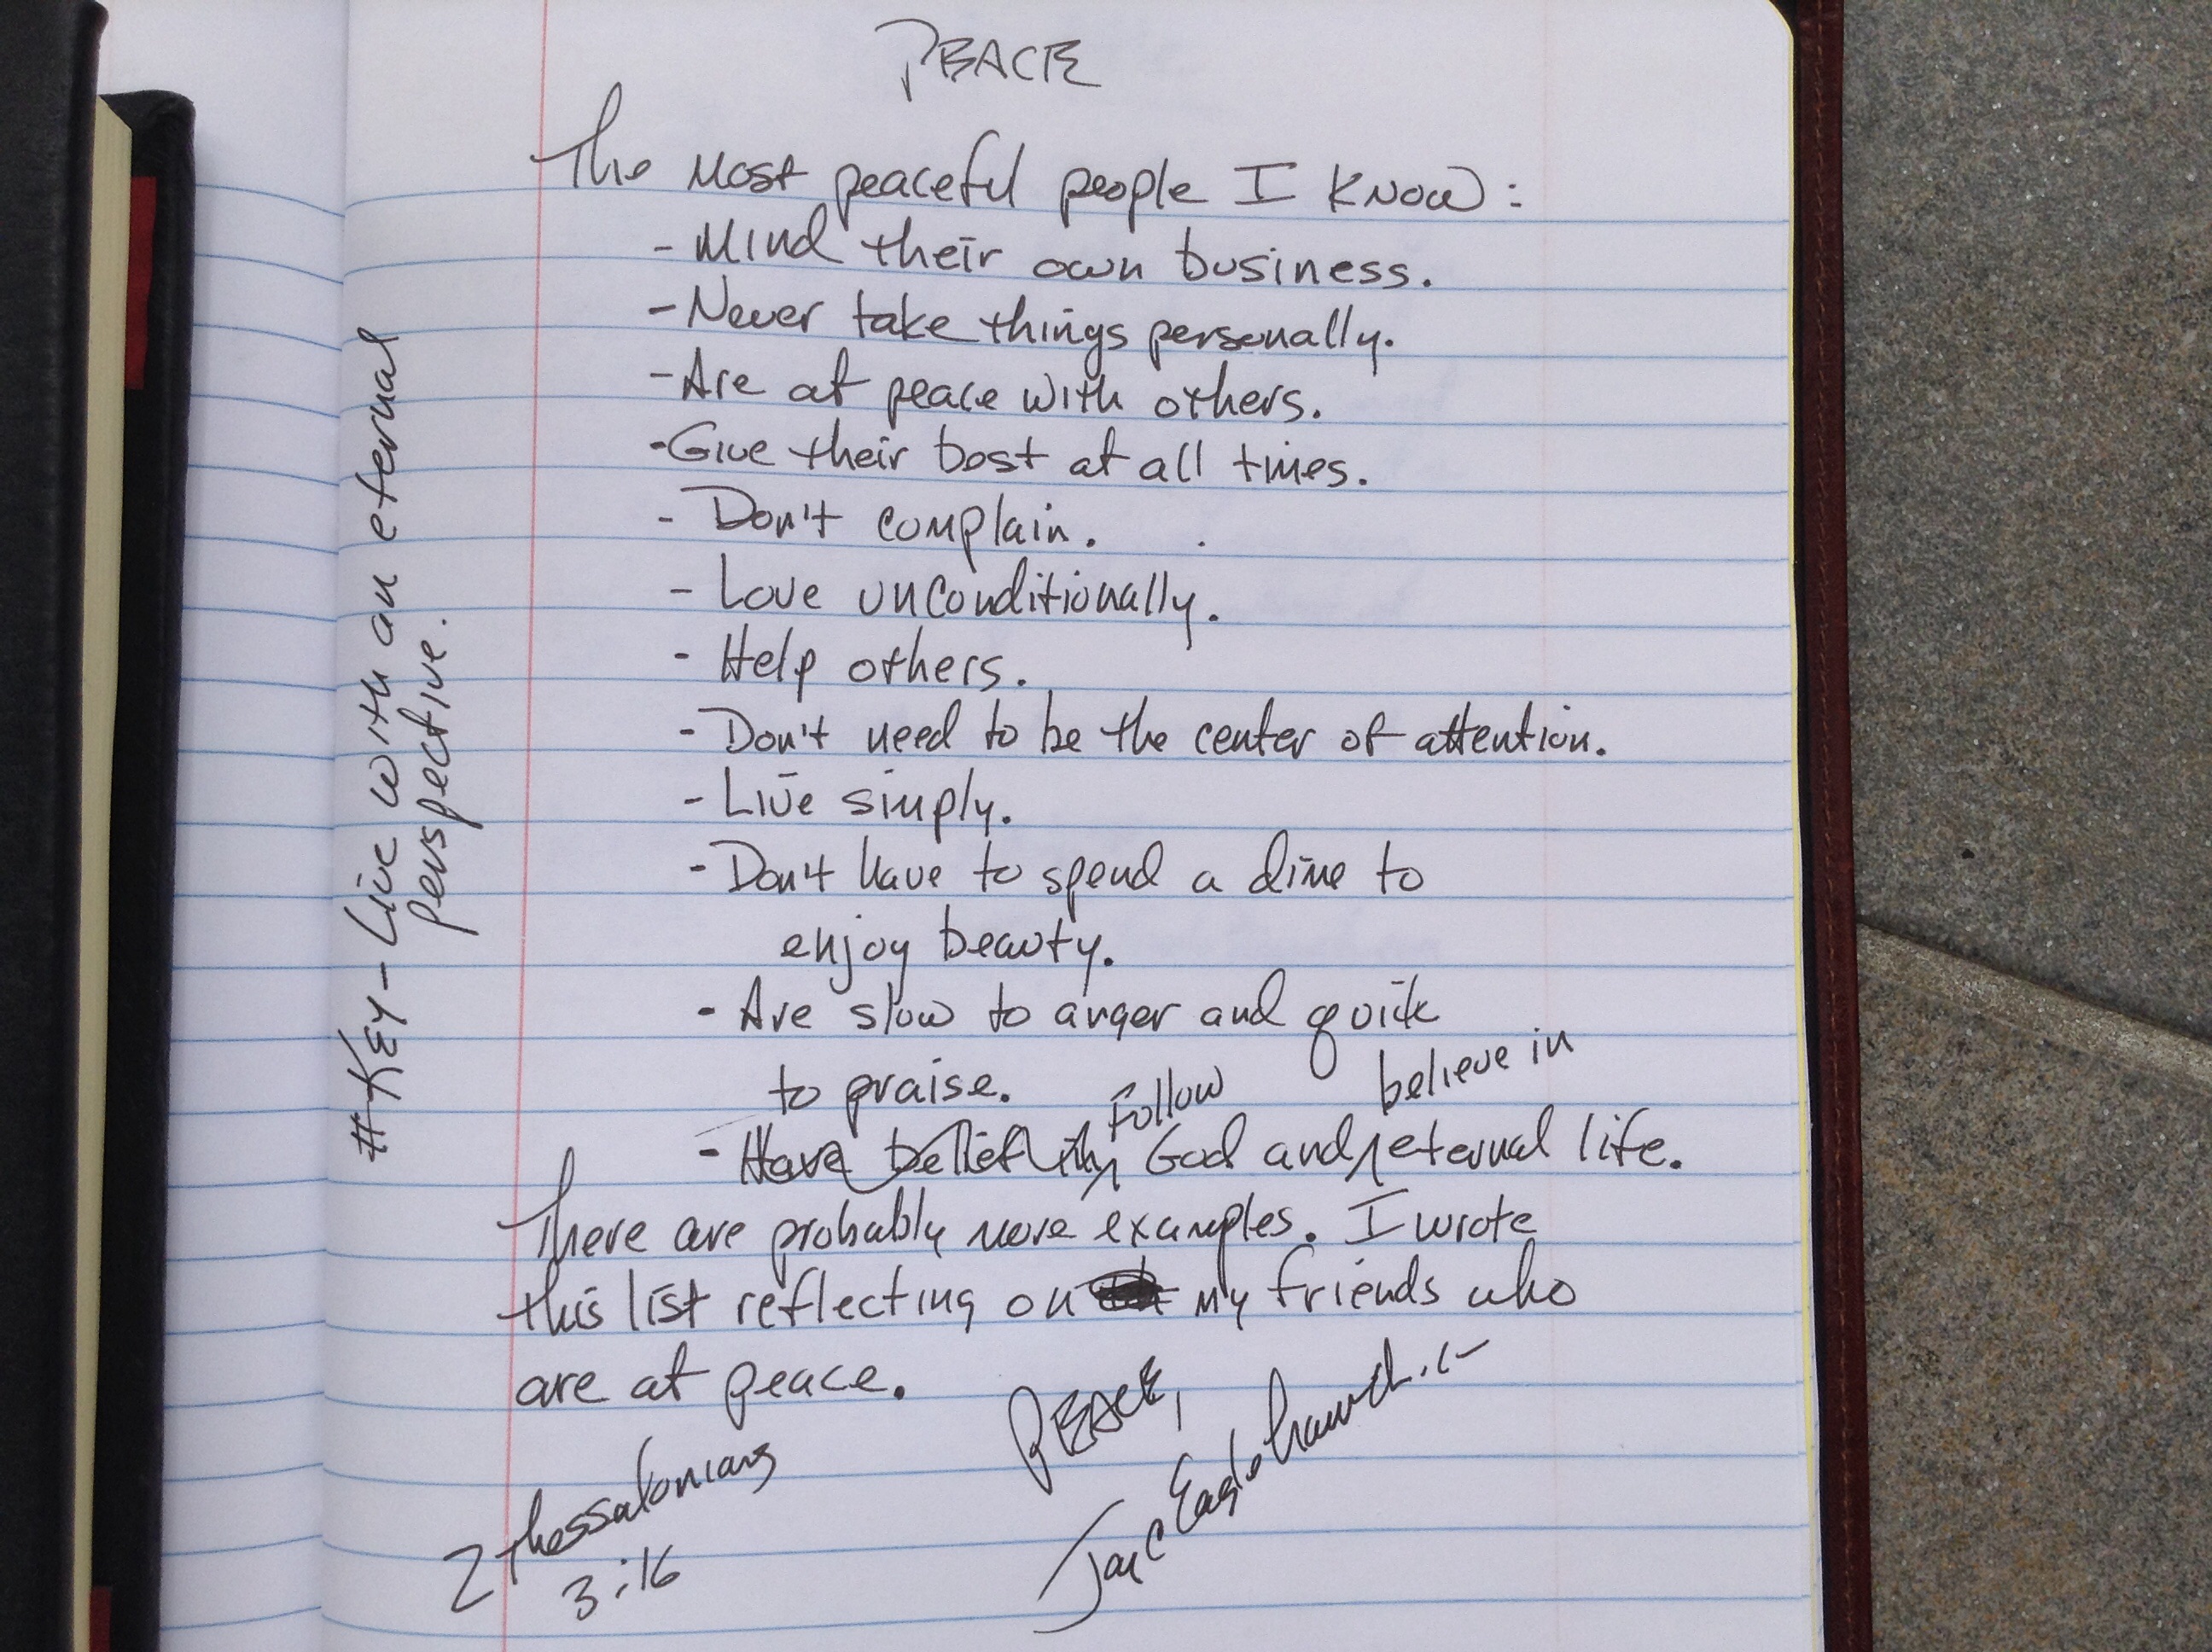 PEACE
The most peaceful people I know:
- Mind their own business.
- Never take things personally.
- Are at peace with others.
- Give their best at all times.
- Don't complain.
- Love unconditionally.
- Help others.
- Don't need to be the center of attention.
- Live simply.
- Don't have to spend a dime to
enjoy beauty.
- Are slow to anger and quick
to praise.
- Have belief in Follow God and believe in eternal life.
There are probably more examples. I wrote
this list reflecting on my friends who
are at peace.
PEACE,
2 Thessalonians
3:16
#KEY - Live with an eternal
perspective.